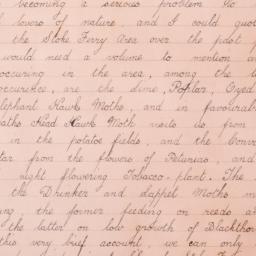 becoming a serious problem to
lovers of nature, and I could quot
the Stoke Ferry Area over the past f
would need a volume to mention a
occuring in the area, among the l
occurence, are the Lime, Poplar, Eyed
lephant Hawk Moths, and in favourabl
eaths Head Hawk Moth visits us from
in the potatoe fields, and the Conv
tar from the flowers of Petunias, and
night flowering Tobacco-plant. The
the Drinker and Lappet Moths m
ing the former feeding on reeds a
the latter on low growth of Blacktho
this very brief account, we can only